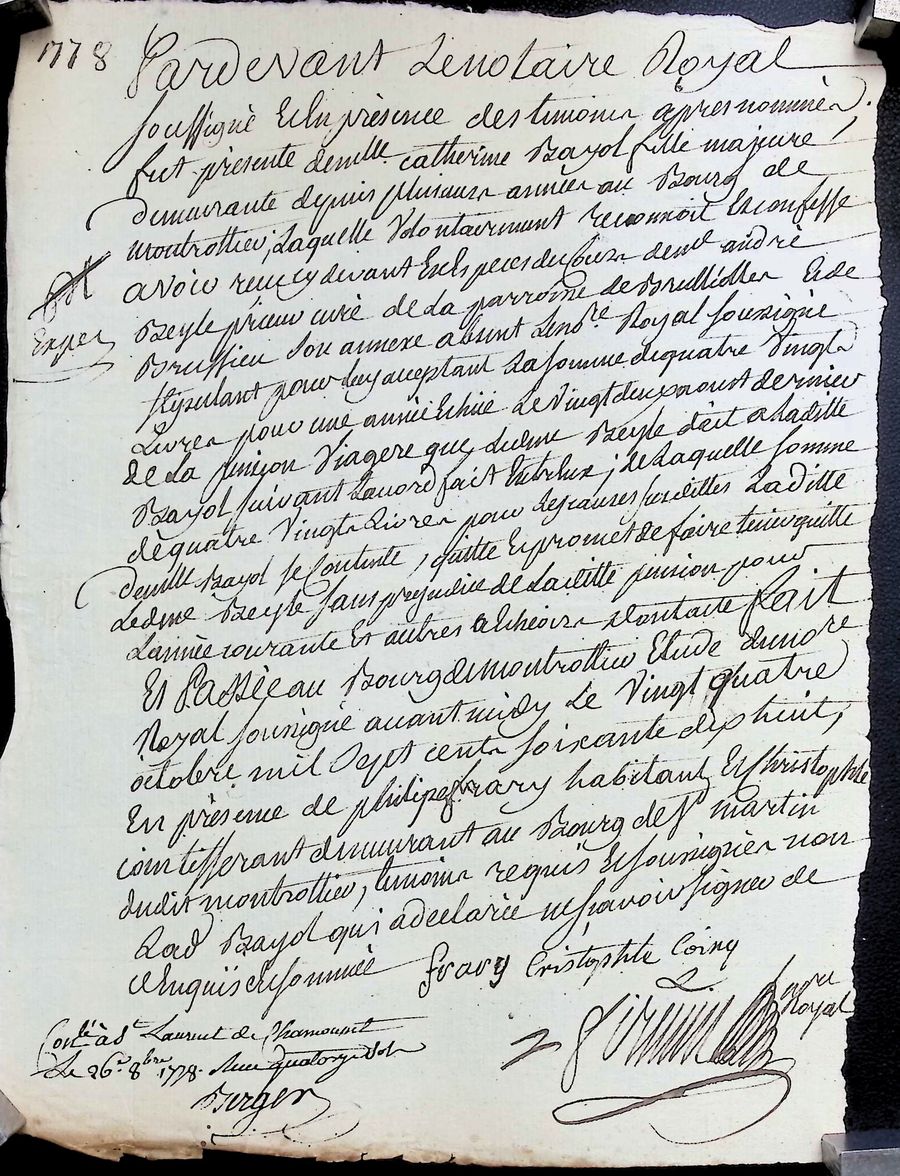 1778
Pardevant Le notaire Royal
soussigné Et En présence des témoins après nommés
fut présente demlle catherine Bayol fille majeure
demeurante depuis plusieurs années au Bourg de
montrottier, Laquelle Volontairement reconnoit Et confesse
avoir reçu cy devant En Especes de cours de mre andré
Exper
Beyle prieur curé de La parroisse de Brullioles Et de
Brussieu son annexe absent Le nore Royal soussigné
stipulant pour luy acceptant La somme de quatre Vingts
Livres pour une année Echue Le Vingt deux aoust dernier
de La pension Viagere que Ledme Beyle doit a Laditte
Bayol suivant Lacord fait Entreux ; de Laquelle somme
de quatre Vingts Livres pour Les causes susdittes Laditte
demlle Bayol se Contente, quitte Et promet de faire tenir quitte
Ledme Beyle sans prejudice de Laditte pension pour
Lannée courante Et autres a Echeoir Dont acte fait
Et Passé au Bourg de montrottier Etude du nore
Royal soussigné avant midy Le Vingt quatre
octobre mil Sept cents soixante dix huit,
En présence de philipe frary habitant Et Christophle
coin tisserant demeurant au Bourg de St martin
dudit montrottier, témoins requis Et soussignés non
Lad Bayol qui a declaree ne sçavoir signer de
ce Enquise Et sommée
frary Cristophle Coiny
nore Royal
Contlé à St Laurent de Chamousset
Le 26e 8bre 1778. Reçu quatorze sols
Berger